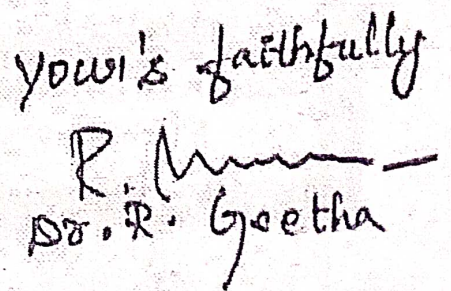 Your's faithfully
R.
Dr. R. Geetha